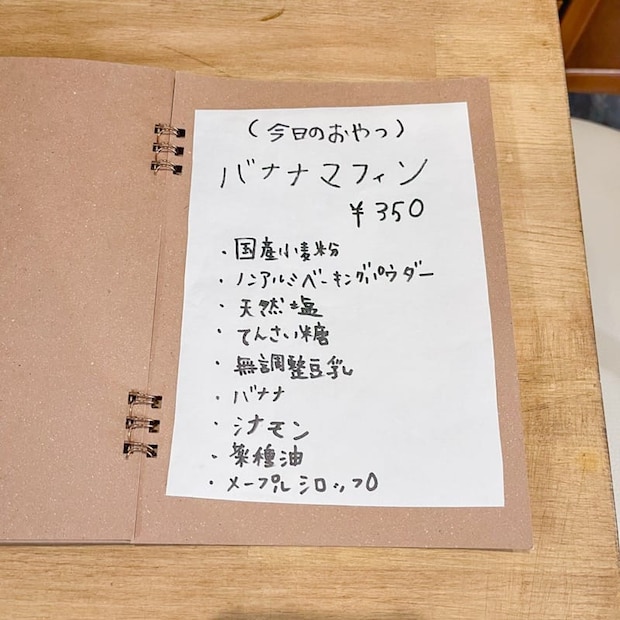 (今日のおやつ)
バナナマフィン
¥350
・国産小麦粉
・ノンアルミベーキングパウダー
・天然塩
・てんさい糖
・無調整豆乳
・バナナ
・シナモン
・菜種油
・メープルシロップ